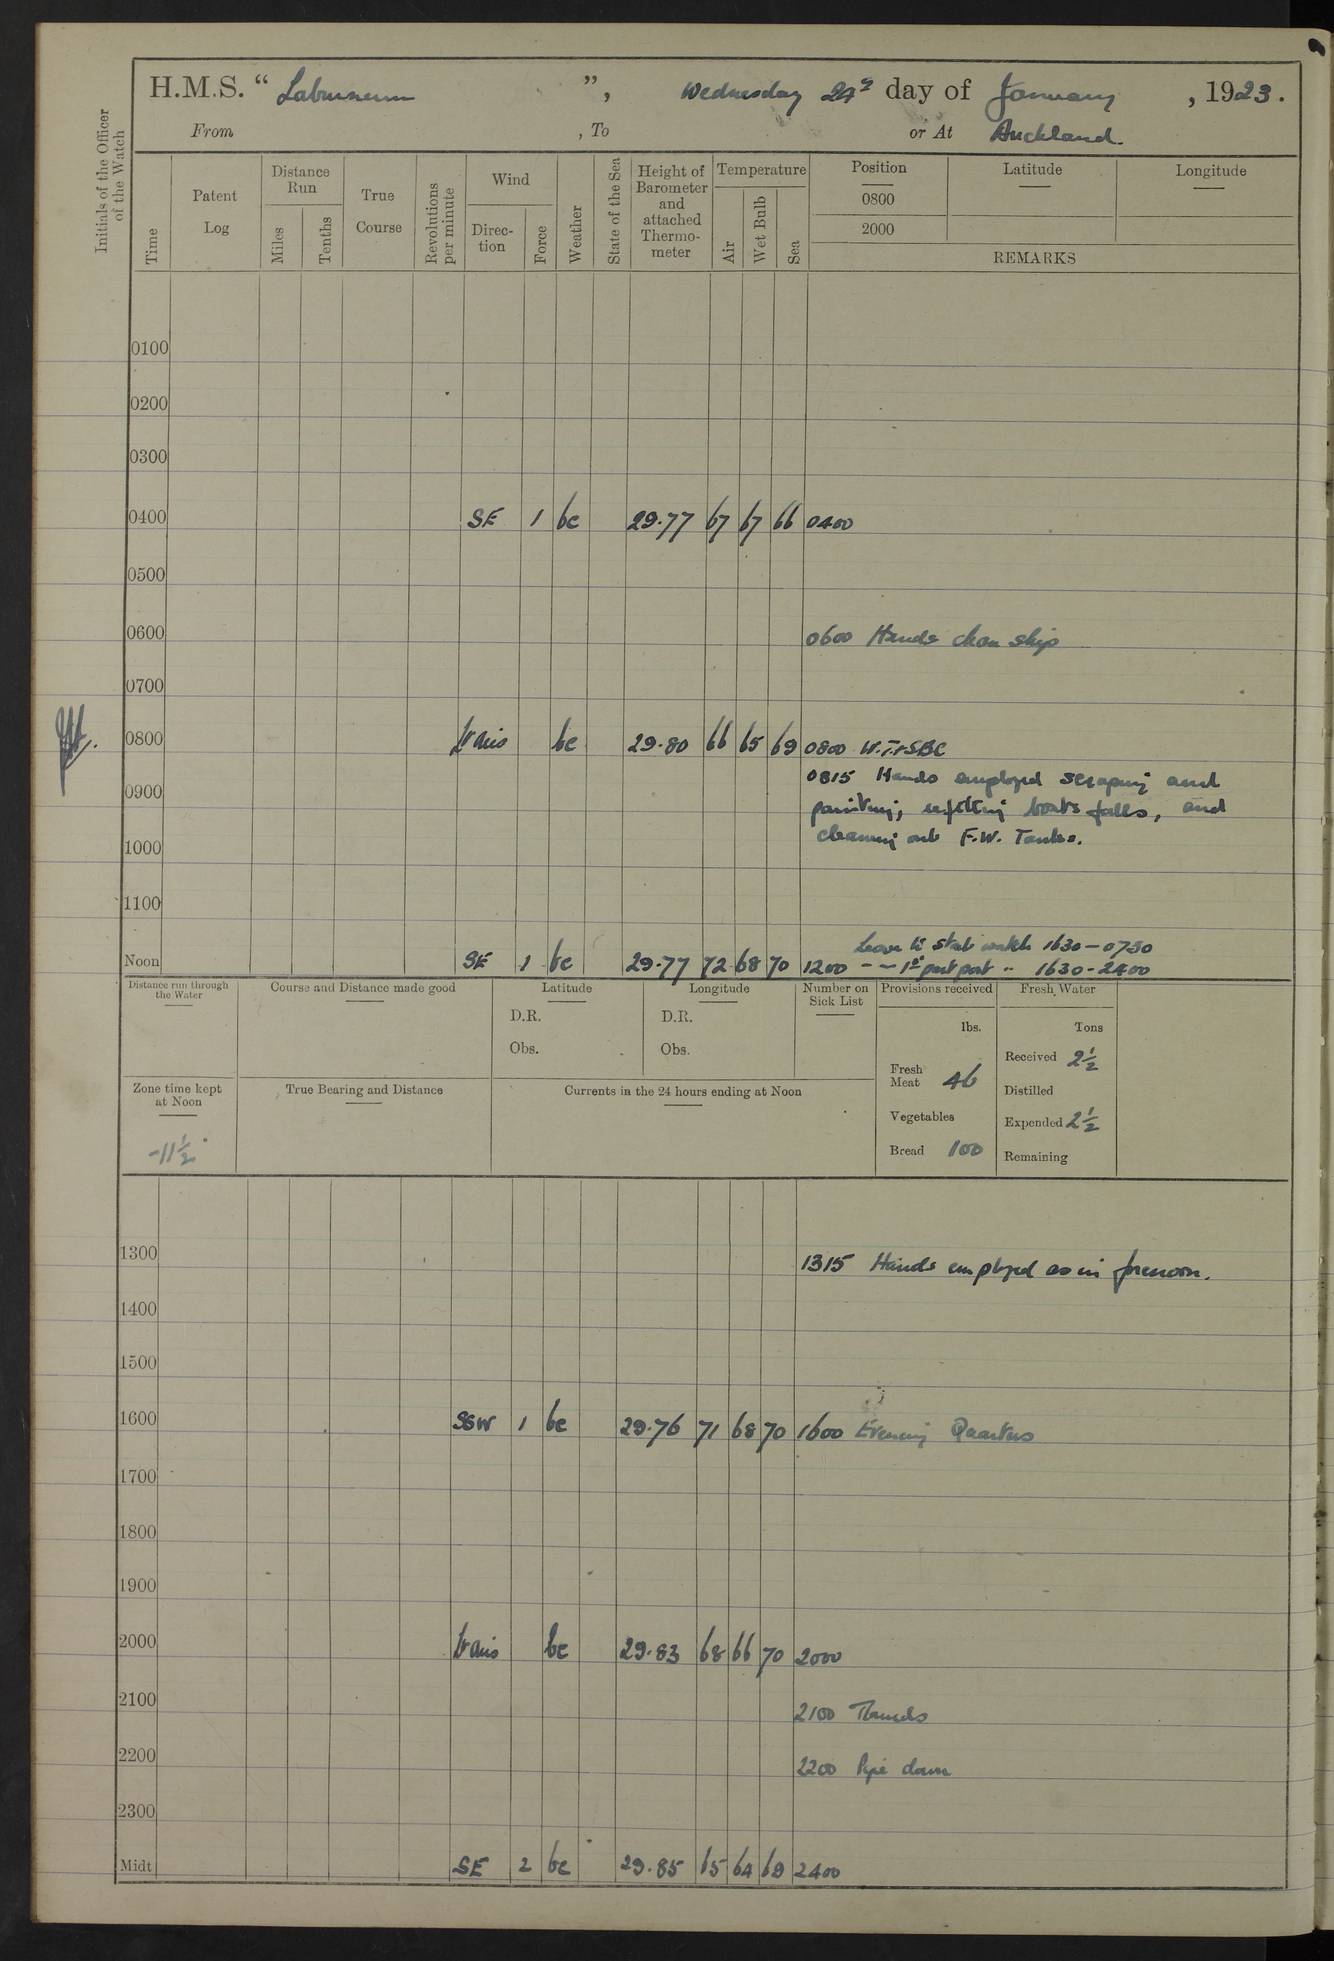 H.M.S. “ Laburnum ”, Wednesday 24th day of January, 1923.
From , To or At Auckland.
Initials of the Officer of the Watch
Time
Patent Log
Distance Run
Miles
Tenths
True Course
Revolutions per minute
Wind
Direction
Force
Weather
State of the Sea
Height of Barometer and attached Thermometer
Temperature
Air
Wet Bulb
Sea
Position
0800
2000
Latitude
Longitude
REMARKS
0100
0200
0300
0400 SE 1 bc 29.77 67 67 66 0400
0500
0600 0600 Hands clean ship
0700
0800 Vairs bc 29.80 66 65 69 0800 W.T.&SBC
0815 Hands employed scraping and
0900
painting, refitting boats falls, and
cleaning out F.W. Tanks.
1000
1100
Leave to starb watch 1630 - 0730
Noon SE 1 bc 29.77 72 68 70 1200 - - 1st part port " 1630 - 2400
Distance run through the Water
Course and Distance made good
Latitude
D.R.
Obs.
Longitude
D.R.
Obs.
Number on Sick List
Provisions received
lbs.
Fresh Meat 46
Vegetables
Bread 100
Fresh Water
Tons
Received 2½
Distilled
Expended 2½
Remaining
Zone time kept at Noon
-11½
True Bearing and Distance
Currents in the 24 hours ending at Noon
1300 1315 Hands employed as in forenoon.
1400
1500
1600 SSW 1 bc 29.76 71 68 70 1600 Evening Quarters
1700
1800
1900
2000 Vairs bc 29.83 68 66 70 2000
2100 2100 Rounds
2200 2200 Pipe down
2300
Midt SE 2 bc 29.85 65 64 69 2400